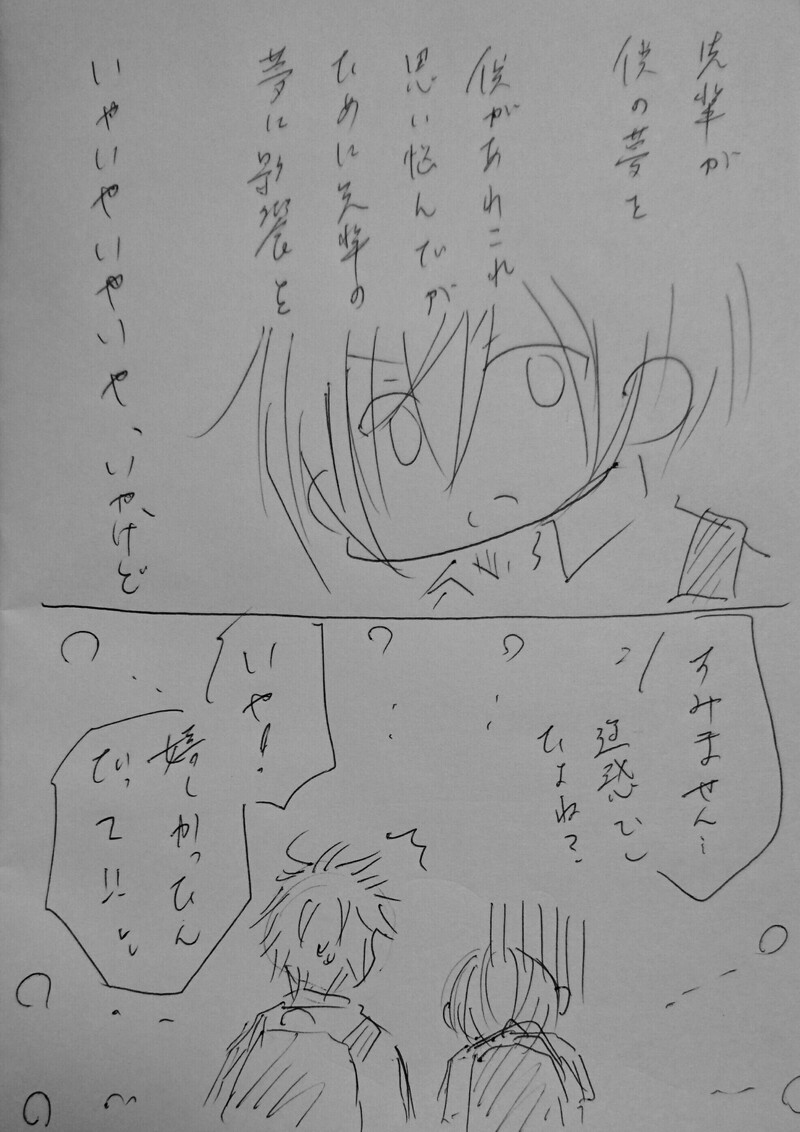 先輩が
僕の夢を
僕があれこれ
思い悩んだが
ために先輩の
夢に影響を
いやいやいやいや、いや、けど
すみません…
迷惑でし
たよね？
いや！
嬉しかったん
だって!!